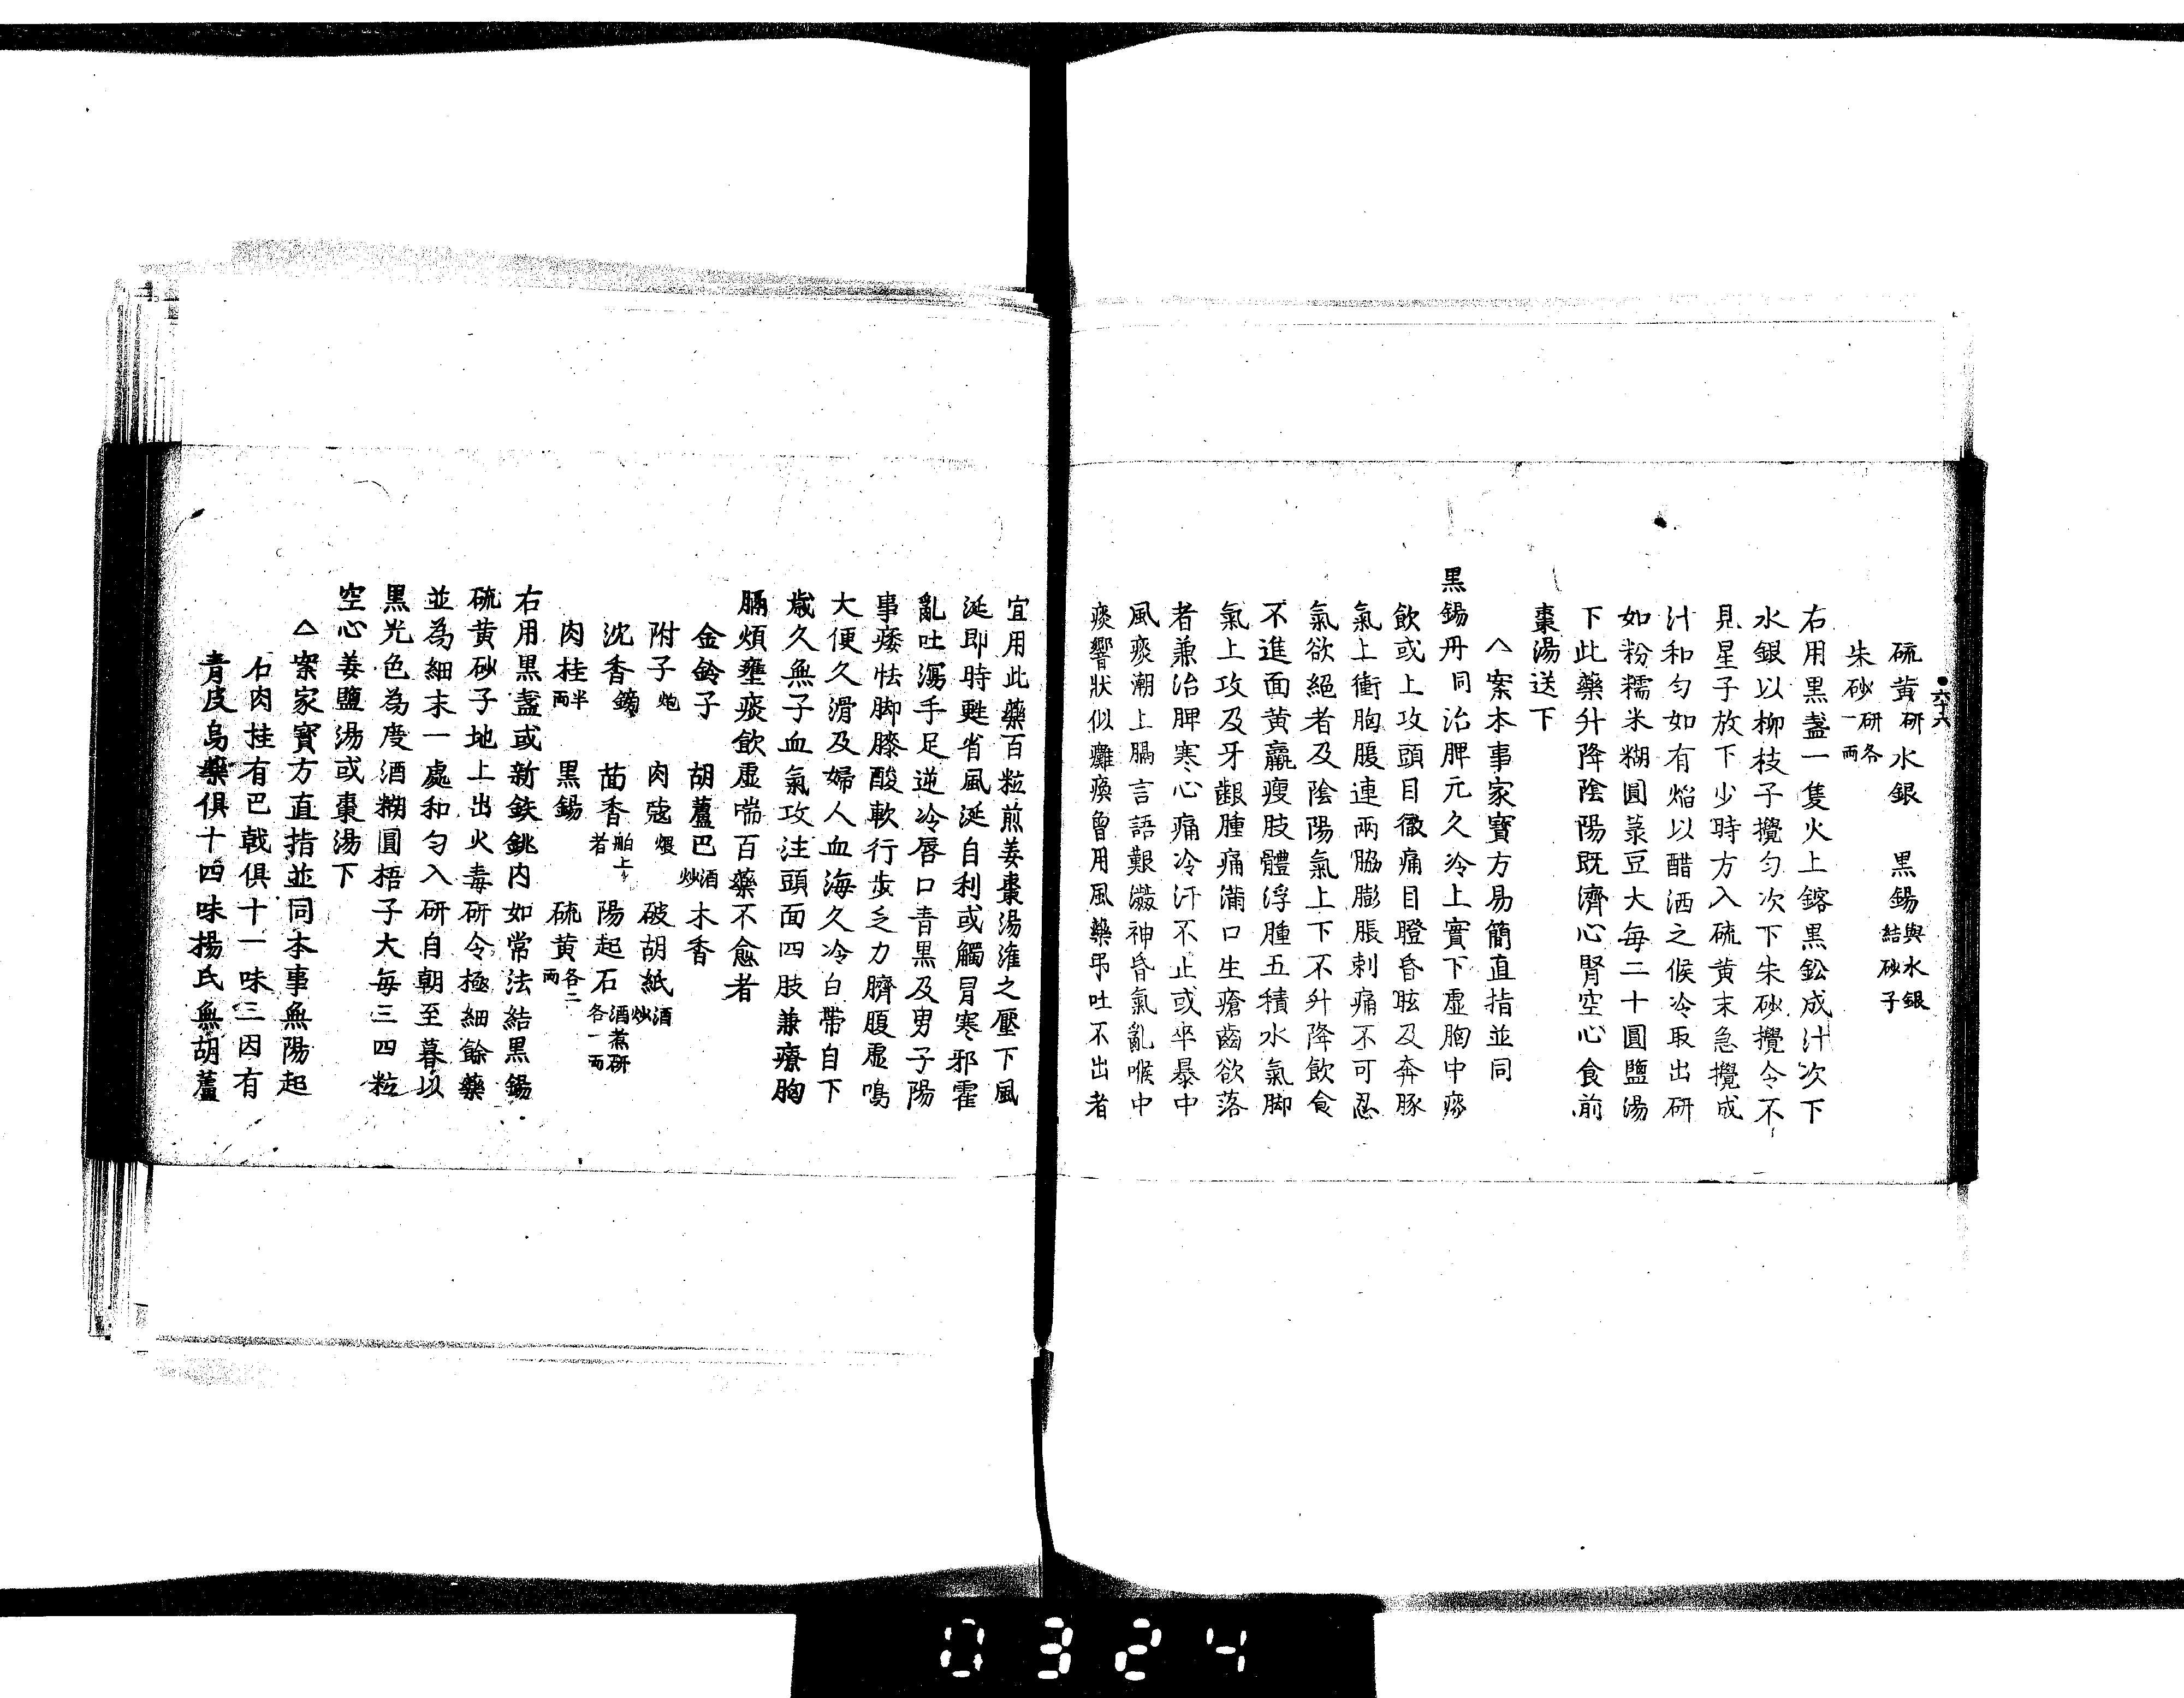 六十六
硫黄研 水銀 黒錫與水銀結砂子
朱砂研各一兩
右用黒盞一隻火上鎔黒鈆成汁次下
水銀以柳枝子攪匀次下朱砂攪令不
見星子放下少時方入硫黄末急攪成
汁和匀如有焰以醋洒之候冷取出研
如粉糯米糊圓菉豆大每二十圓鹽湯
下此藥升降陰陽既濟心腎空心食前
棗湯送下
△案本事家寳方易簡直指並同
黒錫丹 同治脾元久冷上實下虛胸中痰
飲或上攻頭目徹痛目瞪昏眩及奔豚
氣上衝胸腹連兩脇膨脹刺痛不可忍
氣欲絕者及陰陽氣上下不升降飲食
不進面黄羸瘦肢體浮腫五積水氣脚
氣上攻及牙齦腫痛滿口生瘡齒欲落
者兼治脾寒心痛冷汗不止或卒暴中
風痰潮上膈言語艱澁神昏氣亂喉中
痰響狀似癱瘓曾用風藥吊吐不出者
宜用此藥百粒煎姜棗湯灌之壓下風
涎即時甦省風涎自利或觸冒寒邪霍
亂吐瀉手足逆冷唇口青黒及男子陽
事痿怯脚膝酸軟行步乏力臍腹虛鳴
大便久滑及婦人血海久冷白帶自下
歲久無子血氣攻注頭面四肢兼療胸
膈煩壅痰飲虛喘百藥不愈者
金鈴子 胡蘆巴酒炒 木香
附子炮 肉蔻煨 破胡紙酒炒
沈香鎊 茴香舶上者 陽起石酒煮研各一兩
肉桂半兩 黒錫 硫黄各二兩
右用黒盞或新鉄銚内如常法結黒錫
硫黄砂子地上出火毒研令極細餘藥
並為細末一處和匀入研自朝至暮以
黒光色為度酒糊圓梧子大每三四粒
空心姜鹽湯或棗湯下
△案家寳方直指並同本事無陽起
石肉桂有巴戟俱十一味三因有
青皮烏藥俱十四味揚氏無胡蘆
0324